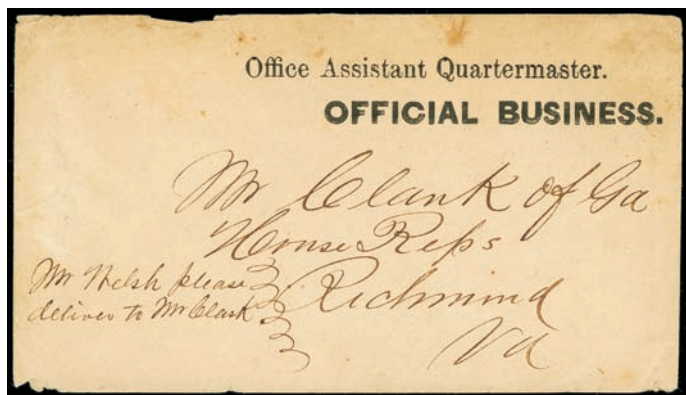 Office Assistant Quartermaster.
OFFICIAL BUSINESS.
Mr Clark of Ga
House Reps
Richmond
Va
Mr Welsh please
deliver to Mr Clark